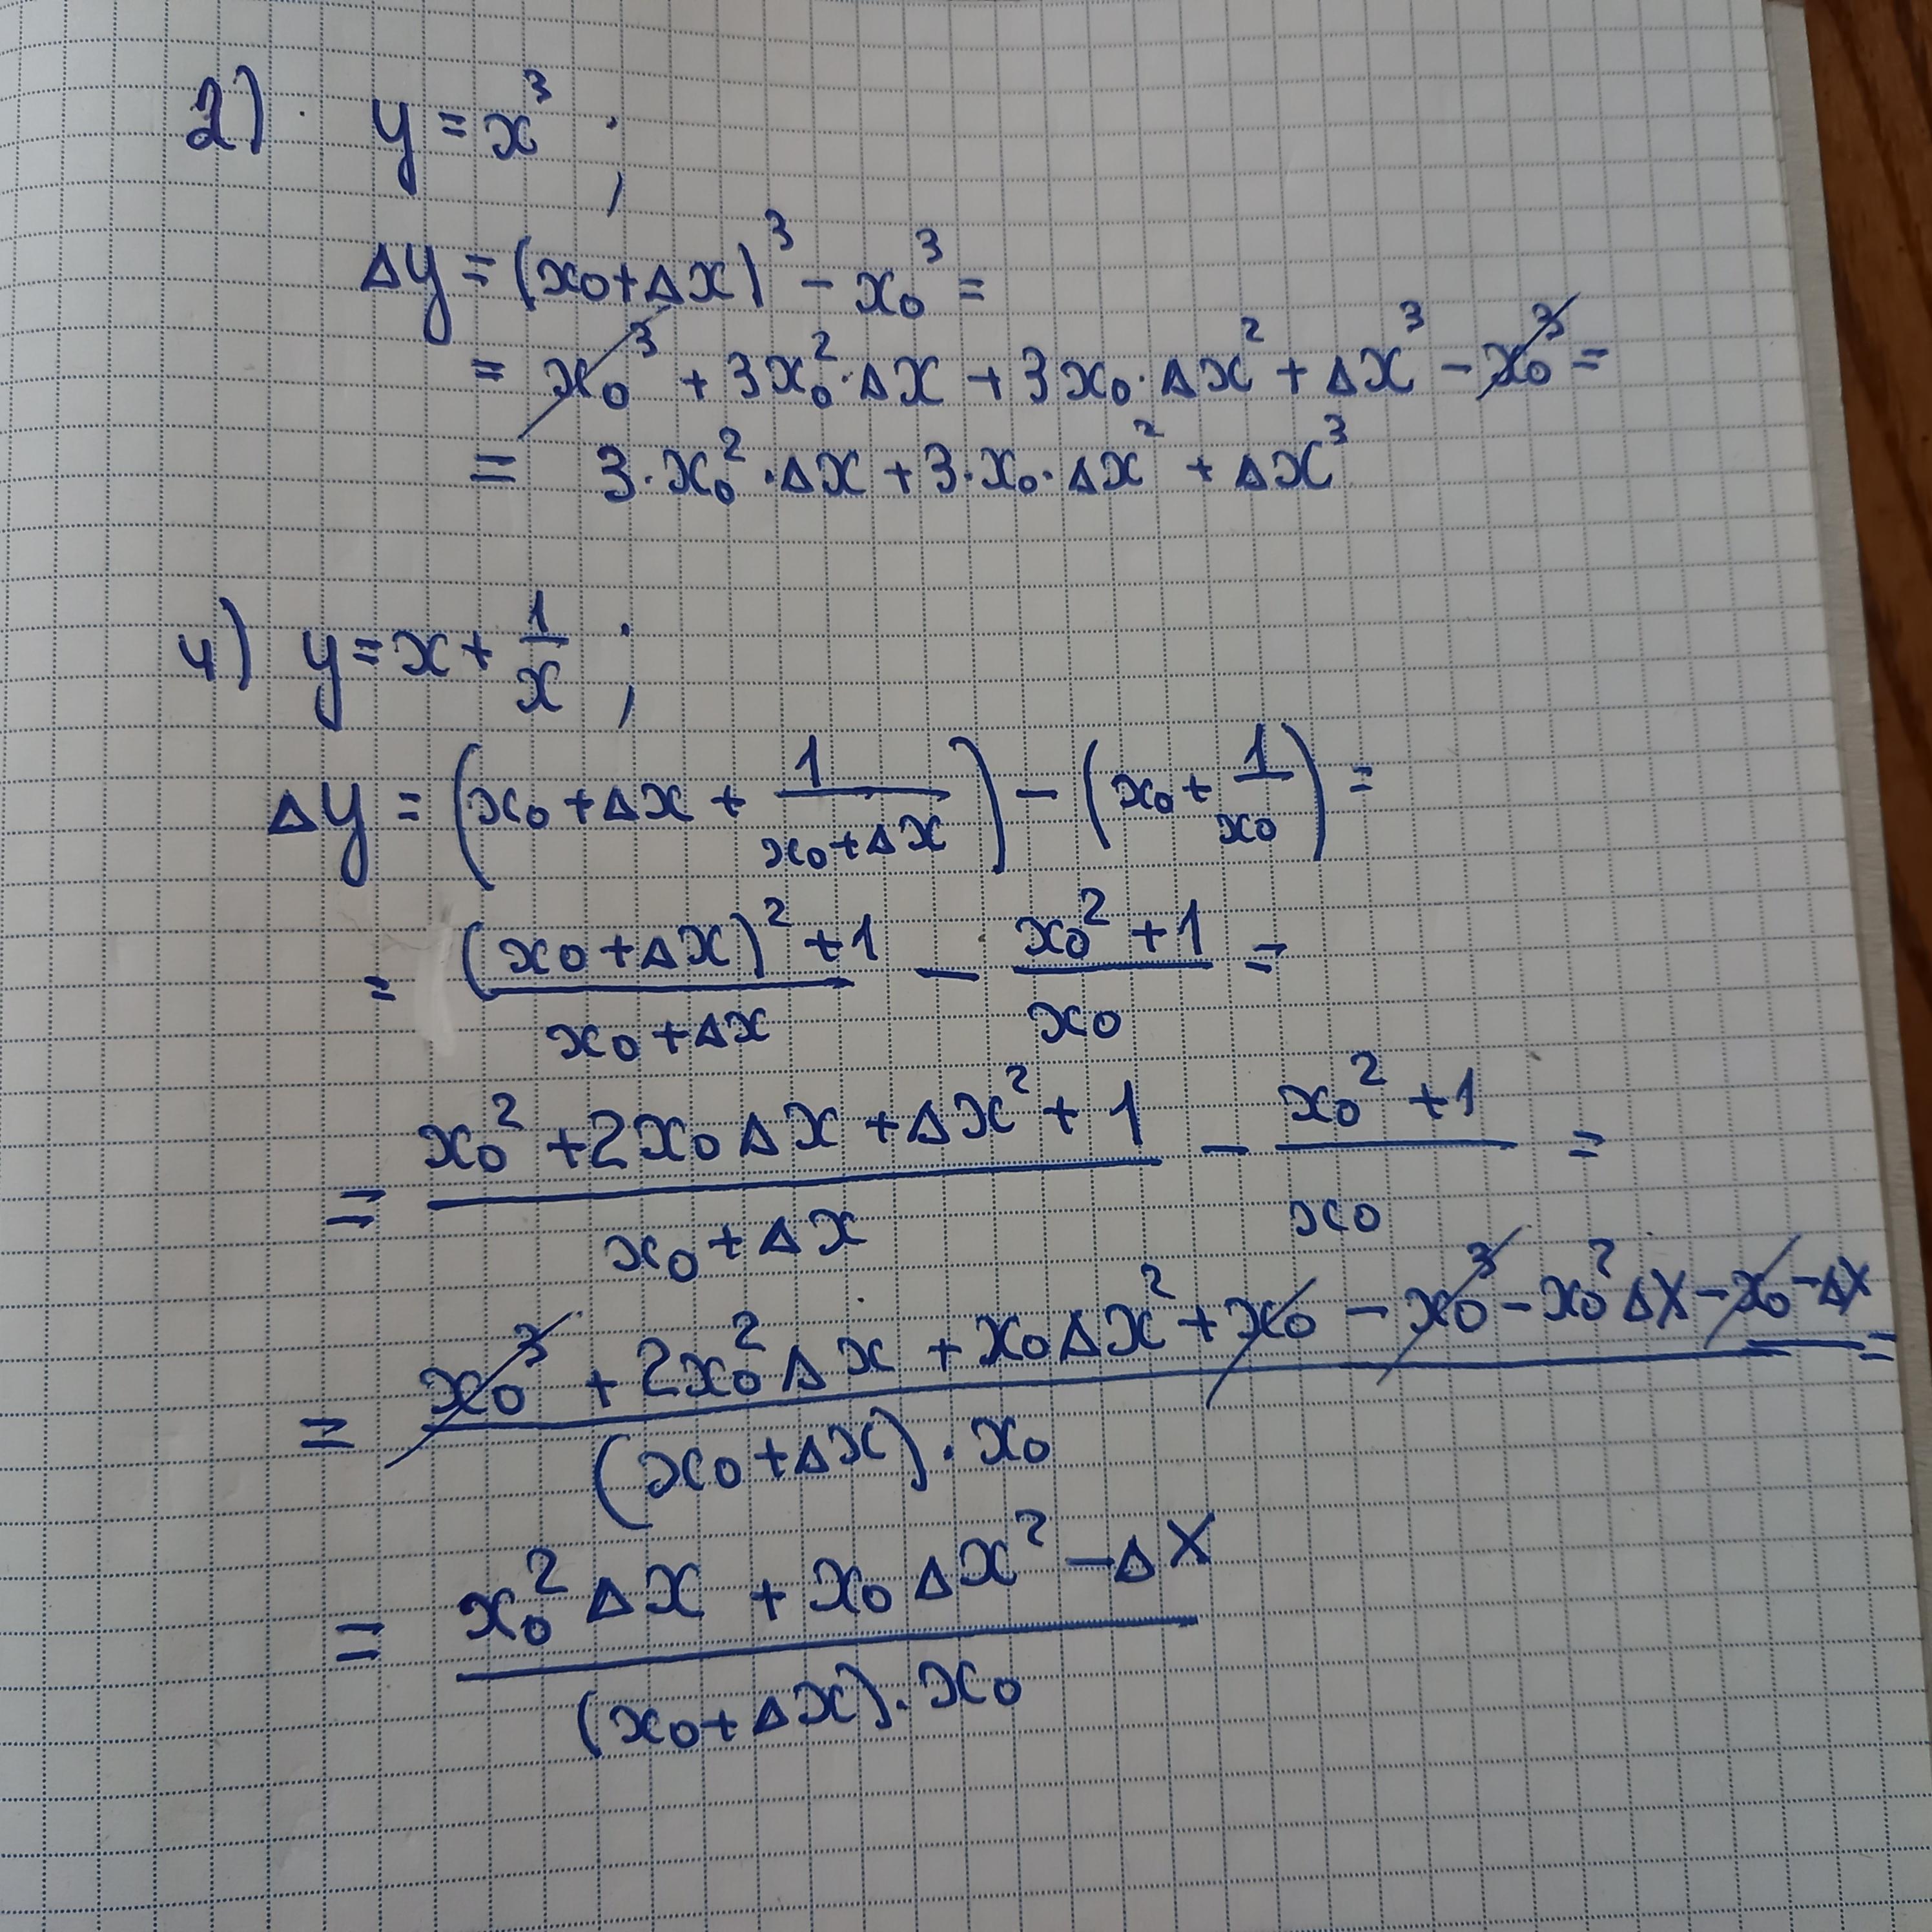 2) y = x³ ;
Δy = (x₀+Δx)³ − x₀³ =
= x₀³ + 3x₀²·Δx + 3x₀·Δx² + Δx³ − x₀³ =
= 3·x₀²·Δx + 3·x₀·Δx² + Δx³
4) y = x + 1/x ;
Δy = (x₀ + Δx + 1/(x₀+Δx)) − (x₀ + 1/x₀) =
= ((x₀+Δx)² + 1)/(x₀+Δx) − (x₀² + 1)/x₀ =
= (x₀² + 2x₀Δx + Δx² + 1)/(x₀+Δx) − (x₀² + 1)/x₀ =
= (x₀³ + 2x₀²Δx + x₀Δx² + x₀ − x₀³ − x₀²Δx − x₀ − Δx)/((x₀+Δx)·x₀) =
= (x₀²Δx + x₀Δx² − Δx)/((x₀+Δx)·x₀)